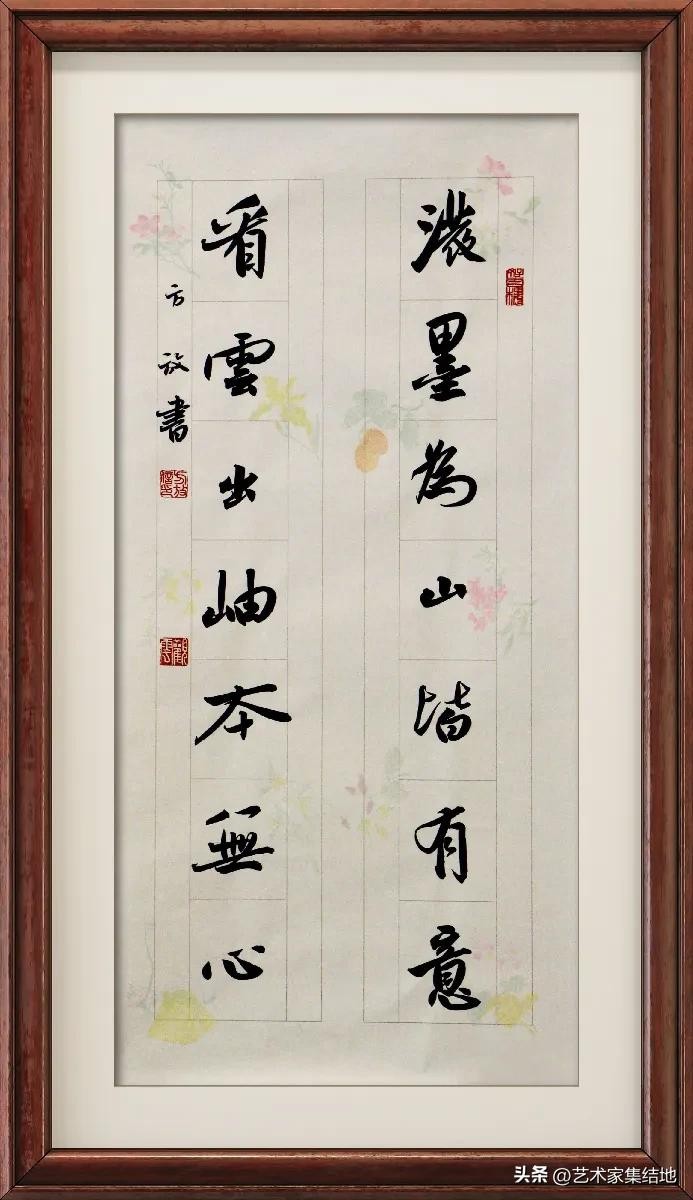 濃墨為山皆有意
看雲出岫本無心
方放書
头条 @艺术家集结地